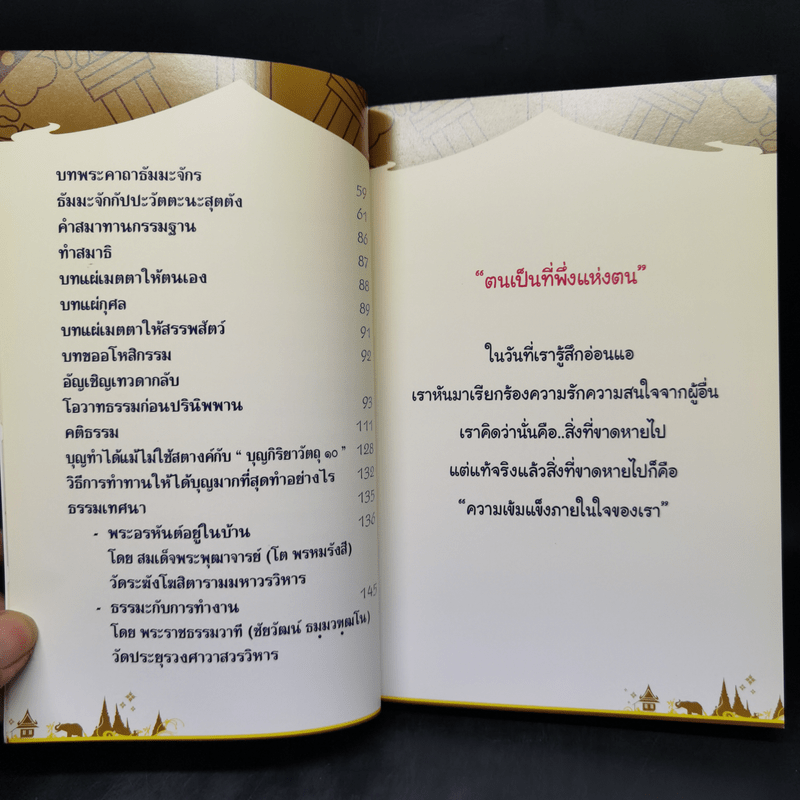 บทพระคาถาธัมมะจักร 59
ธัมมะจักกัปปะวัตตะนะสุตตัง 61
คำสมาทานกรรมฐาน 86
ทำสมาธิ 87
บทแผ่เมตตาให้ตนเอง 88
บทแผ่กุศล 89
บทแผ่เมตตาให้สรรพสัตว์ 91
บทขออโหสิกรรม 92
อัญเชิญเทวดากลับ 93
โอวาทธรรมก่อนปรินิพพาน 111
คติธรรม 128
บุญทำได้แม้ไม่ใช้สตางค์กับ “ บุญกิริยาวัตถุ ๑๐ ” 132
วิธีการทำทานให้ได้บุญมากที่สุดทำอย่างไร 135
ธรรมเทศนา 136
- พระอรหันต์อยู่ในบ้าน
โดย สมเด็จพระพุฒาจารย์ (โต พรหมรังสี)
วัดระฆังโฆสิตารามมหาวรวิหาร 145
- ธรรมะกับการทำงาน
โดย พระราชธรรมวาที (ชัยวัฒน์ ธมฺมวฑฺฒโน)
วัดประยุรวงศาวาสวรวิหาร
“ตนเป็นที่พึ่งแห่งตน”
ในวันที่เรารู้สึกอ่อนแอ
เราหันมาเรียกร้องความรักความสนใจจากผู้อื่น
เราคิดว่านั่นคือ..สิ่งที่ขาดหายไป
แต่แท้จริงแล้วสิ่งที่ขาดหายไปก็คือ
“ความเข้มแข็งภายในใจของเรา”